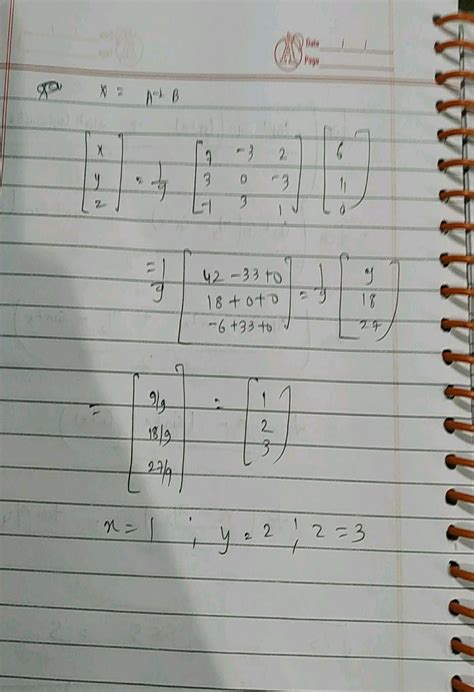 Date / /
Page
X = A-1 B
[x y z] = 1/9 [7 -3 2; 3 0 -3; -1 3 1] [6 11 0]
= 1/9 [42 - 33 + 0; 18 + 0 + 0; -6 + 33 + 0] = 1/9 [9 18 27]
= [9/9 18/9 27/9] = [1 2 3]
x = 1 ; y = 2 ; z = 3